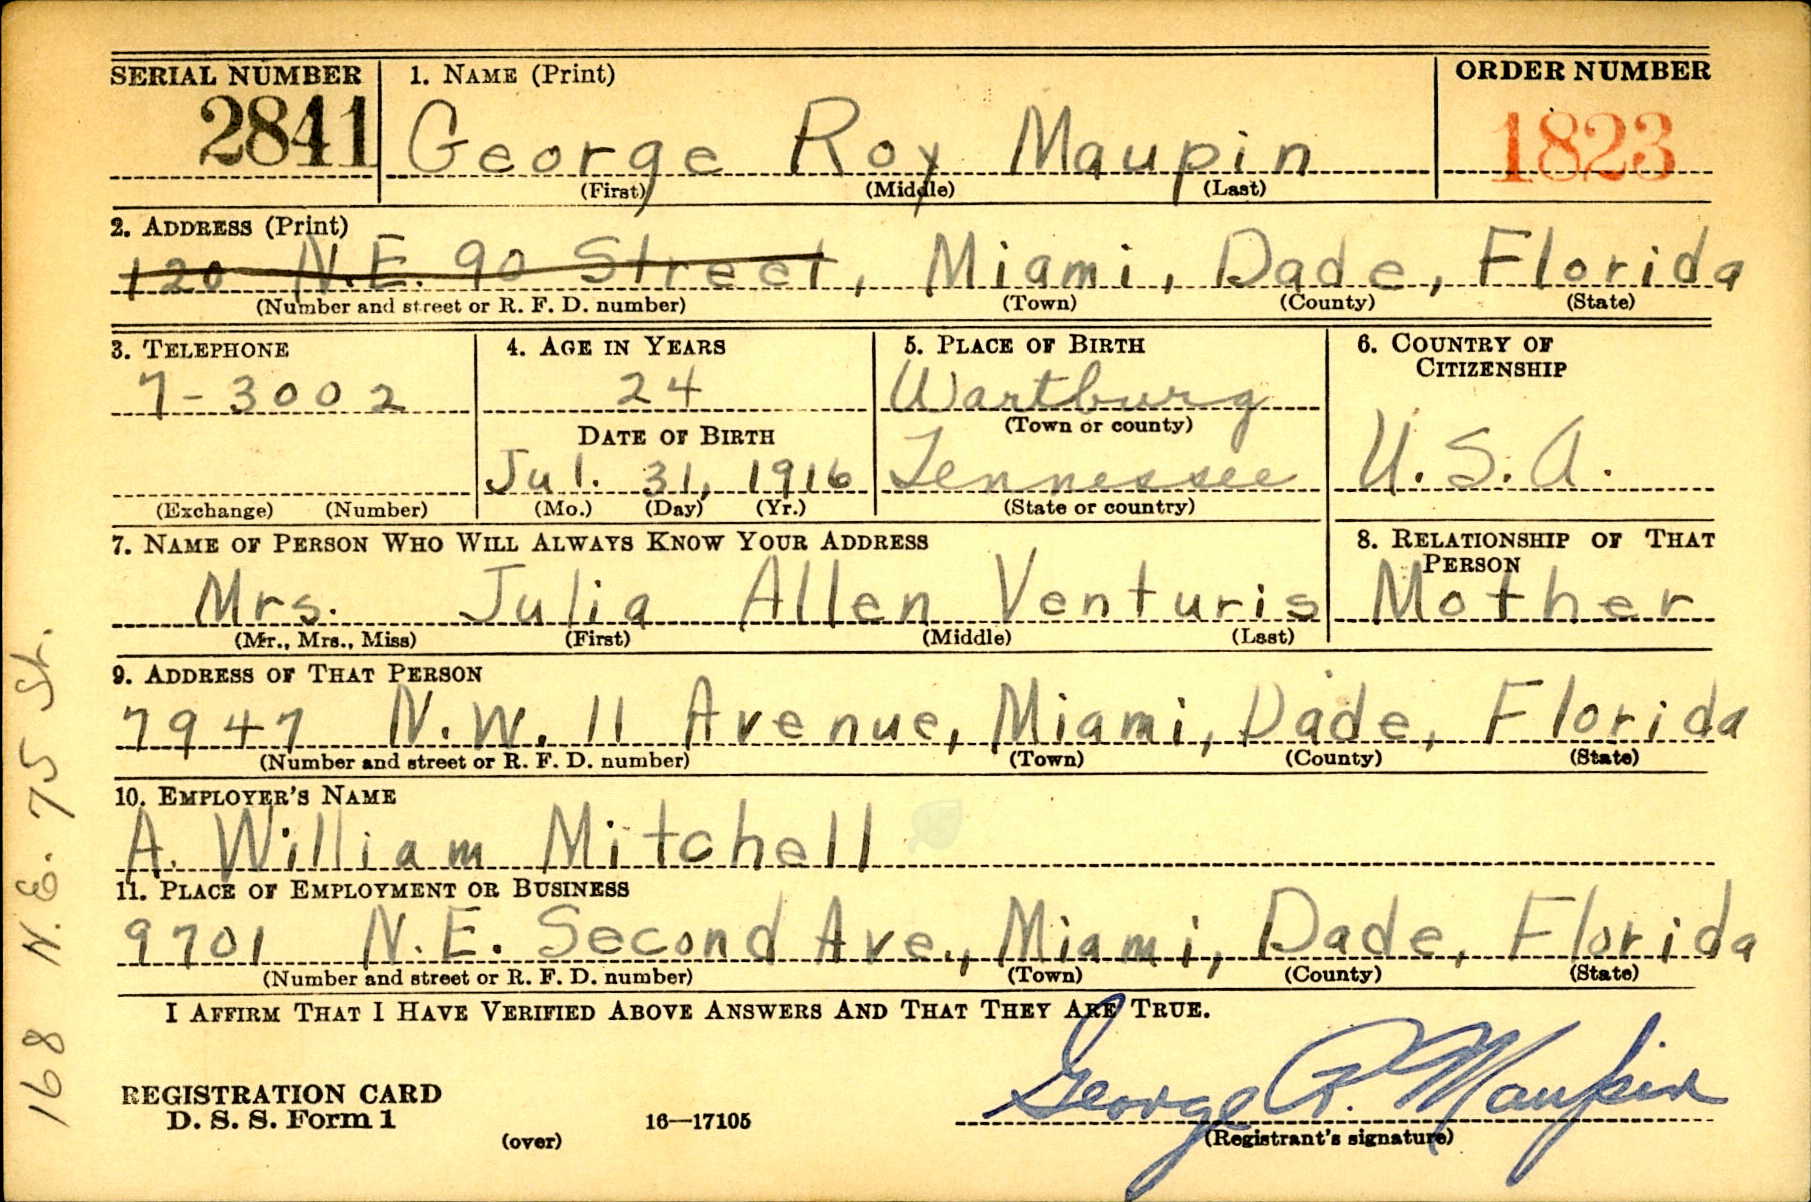 SERIAL NUMBER
2841
1. NAME (Print)
George Roy Maupin
(First) (Middle) (Last)
ORDER NUMBER
1823
2. ADDRESS (Print)
120 N.E. 90 Street, Miami, Dade, Florida
(Number and street or R. F. D. number) (Town) (County) (State)
3. TELEPHONE
7-3002
(Exchange) (Number)
4. AGE IN YEARS
24
DATE OF BIRTH
Jul. 31, 1916
(Mo.) (Day) (Yr.)
5. PLACE OF BIRTH
Wartburg
(Town or county)
Tennessee
(State or country)
6. COUNTRY OF
CITIZENSHIP
U.S.A.
7. NAME OF PERSON WHO WILL ALWAYS KNOW YOUR ADDRESS
Mrs. Julia Allen Venturis
(Mr., Mrs., Miss) (First) (Middle) (Last)
8. RELATIONSHIP OF THAT
PERSON
Mother
9. ADDRESS OF THAT PERSON
7947 N.W. 11 Avenue, Miami, Dade, Florida
(Number and street or R. F. D. number) (Town) (County) (State)
10. EMPLOYER'S NAME
A. William Mitchell
11. PLACE OF EMPLOYMENT OR BUSINESS
9701 N.E. Second Ave., Miami, Dade, Florida
(Number and street or R. F. D. number) (Town) (County) (State)
I AFFIRM THAT I HAVE VERIFIED ABOVE ANSWERS AND THAT THEY ARE TRUE.
REGISTRATION CARD
D. S. S. Form 1
(over)
16—17105
George R. Maupin
(Registrant's signature)
168 N.E. 75 St.